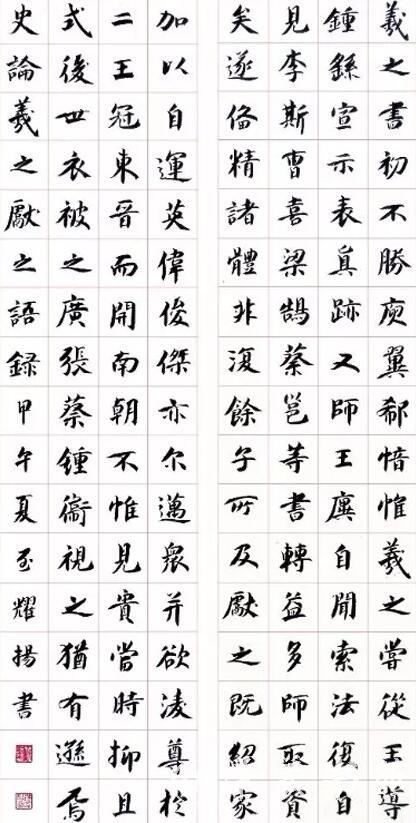 羲之書初不勝庾翼郗愔惟羲之嘗從王導
鍾繇宣示表真跡又師王廙自聞索法復自
見李斯曹喜梁鵠蔡邕等書轉益多師取資
矣遂備精諸體非復餘子所及獻之既紹家
加以自運英偉俊傑亦尔邁眾并欲淩尊於
二王冠東晉而開南朝不惟見貴當時抑且
式後世衣被之廣張蔡鍾衛視之猶有遜焉
史論羲之獻之語録甲午夏至耀揚書